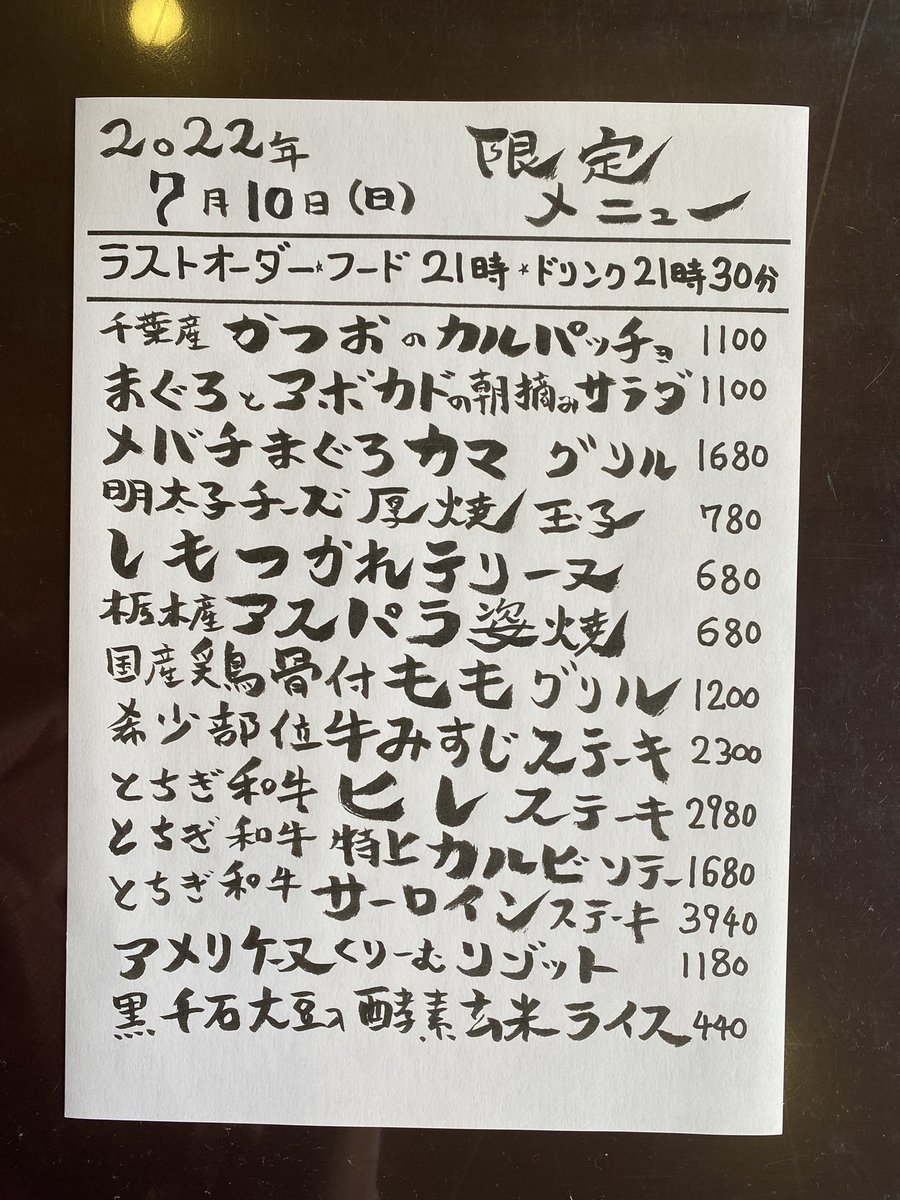 2022年 限定
7月10日(日) メニュー
ラストオーダー*フード21時*ドリンク21時30分
千葉産 かつおのカルパッチョ 1100
まぐろとアボカドの朝摘みサラダ 1100
メバチまぐろカマ グリル 1680
明太子チーズ厚焼玉子 780
しもつかれテリーヌ 680
栃木産アスパラ姿焼 680
国産鶏骨付ももグリル 1200
希少部位牛みすじステーキ 2300
とちぎ和牛 ヒレステーキ 2980
とちぎ和牛 特上カルビソテー 1680
とちぎ和牛 サーロインステーキ 3940
アメリケーヌくりーむリゾット 1180
黒千石大豆入酵素玄米ライス 440